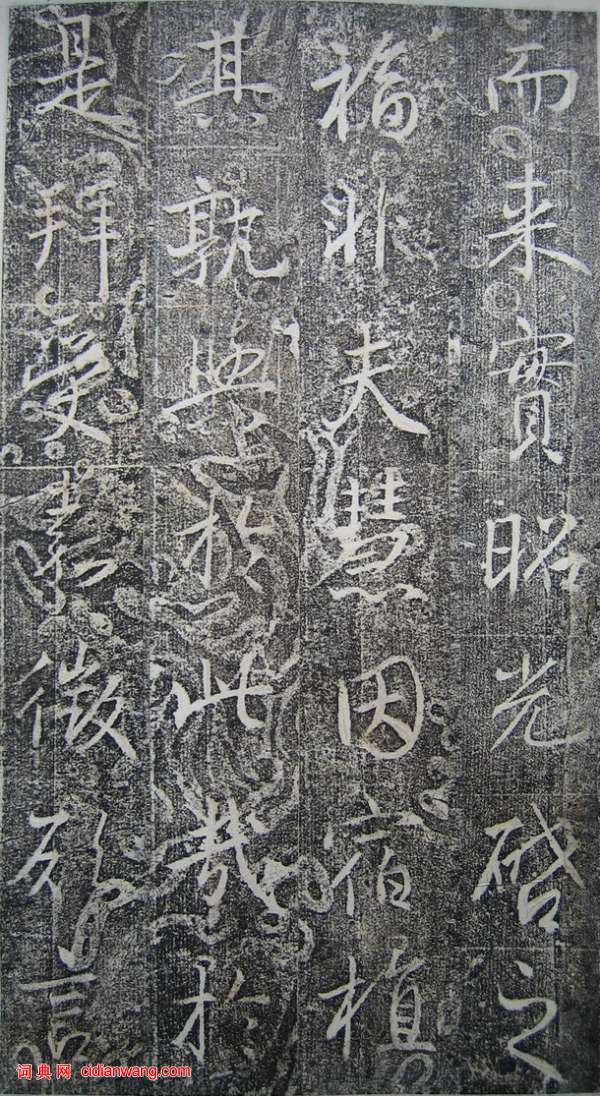 而来實昭光啓之
福非夫慧因宿植
其孰與於此哉於
是拜受嘉徵言
词典网 cidianwang.com